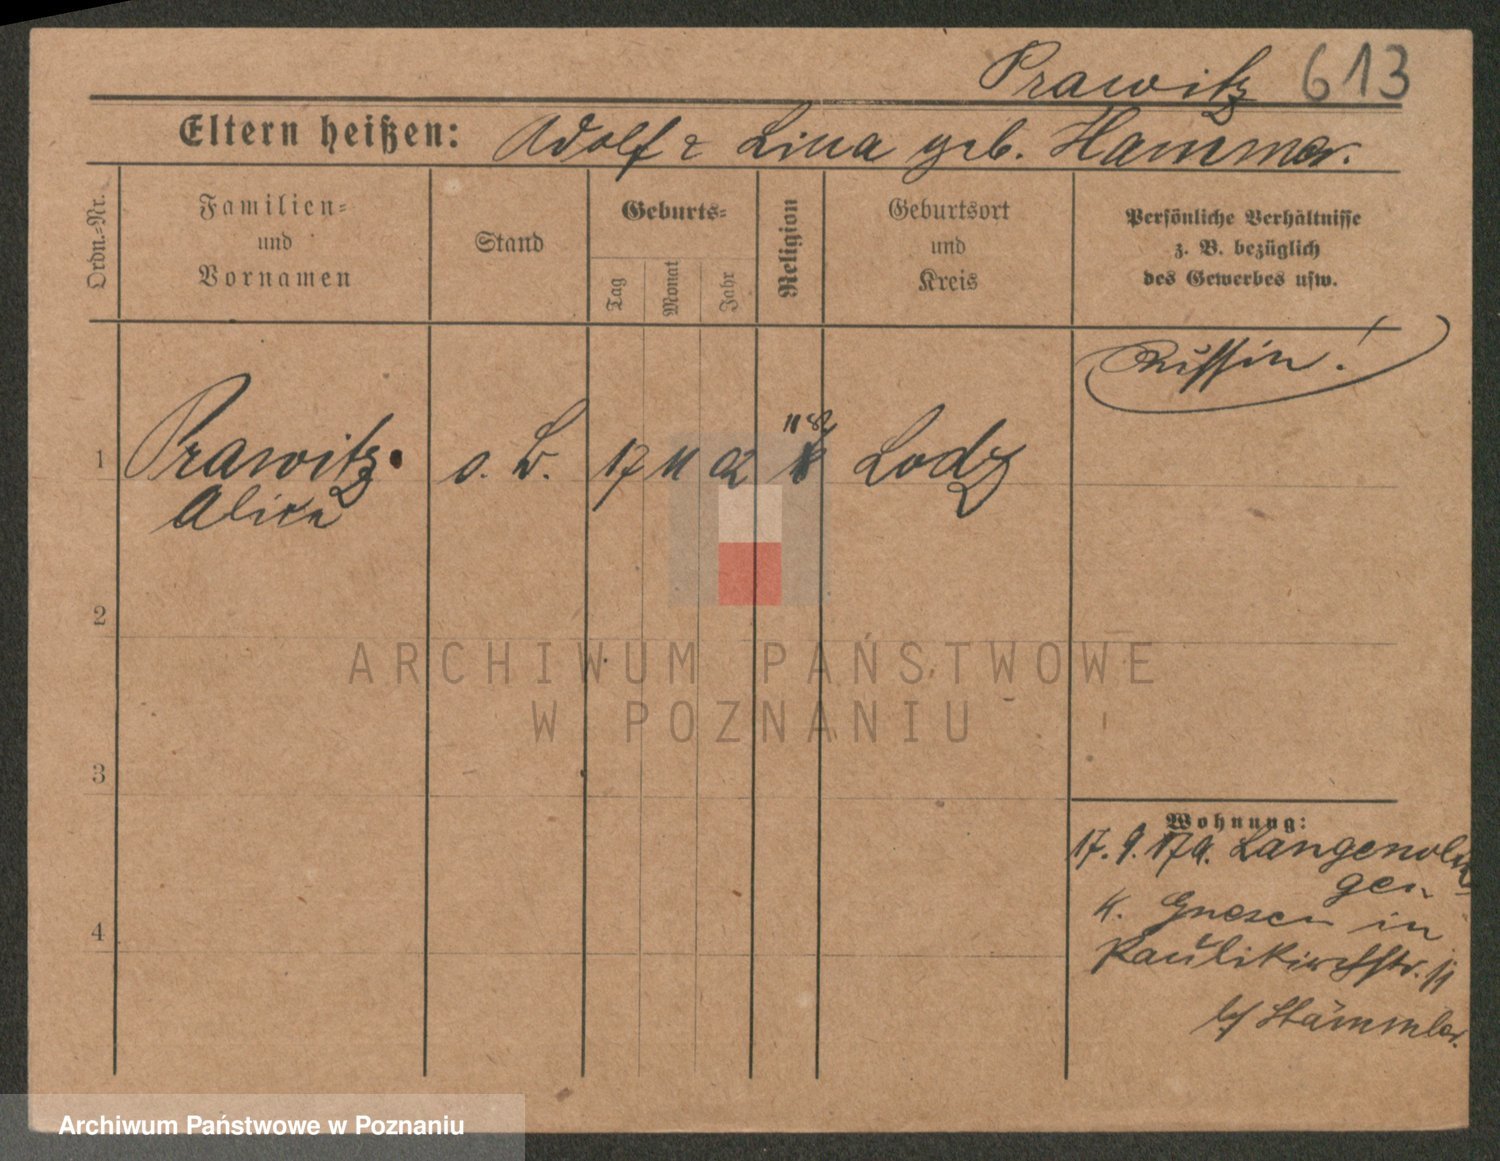 Prawitz 613
Eltern heißen: Adolf & Lina geb. Hammer.
Ordn.-Nr.
Familien-
und
Vornamen
Stand
Geburts-
Tag
Monat
Jahr
Religion
Geburtsort
und
Kreis
Persönliche Verhältnisse
z. B. bezüglich
des Gewerbes usw.
Russin!
1 Prawitz 17 11 02 Lodz
Alice
2
3
4
Wohnung:
17. 9. 17 a. Langenolin
gen
K. Gnesen in
Paulikirchstr. 11
bei Stämmler.
ARCHIWUM PAŃSTWOWE
W POZNANIU
Archiwum Państwowe w Poznaniu